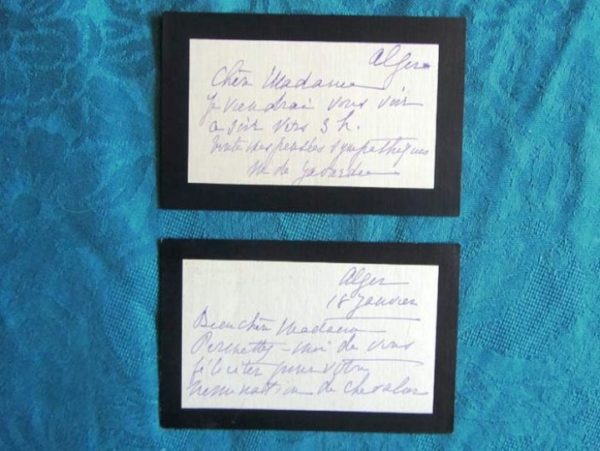 Alger
Chère Madame
Je viendrai vous voir
ce soir vers 3 h.
toutes mes pensées sympathiques
M de
Alger
18 Janvier
Bien chère Madame
Permettez-moi de vous
féliciter pour votre
nomination de Chevalier